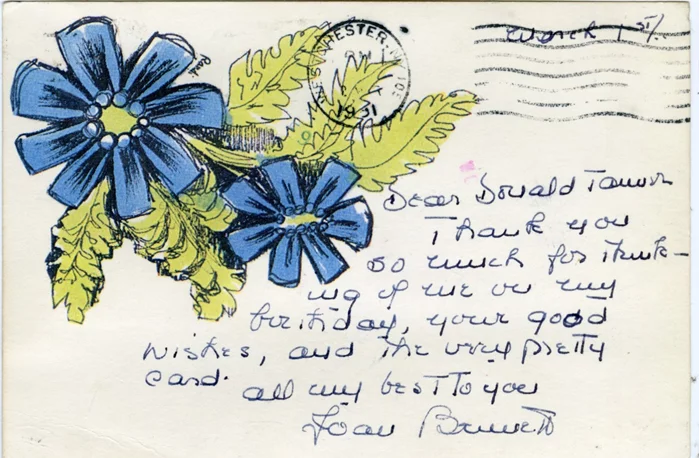 March 1st/.
WESTCHESTER
PM
1981
Dear Donald
Thank you
so much for think-
ing of me on my
birthday, your good
wishes, and the very pretty
card.
all my best to you
Joan Bennett